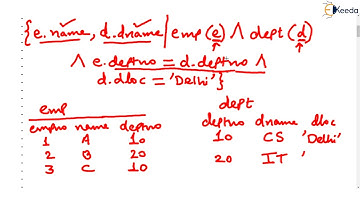 Ekeeda
{e.name, d.dname | emp(e) ∧ dept(d)
∧ e.deptno = d.deptno ∧
d.dloc = 'Delhi'}
emp
empno name deptno
1 A 10
2 B 20
3 C 10
dept
deptno dname dloc
10 CS 'Delhi'
20 IT '